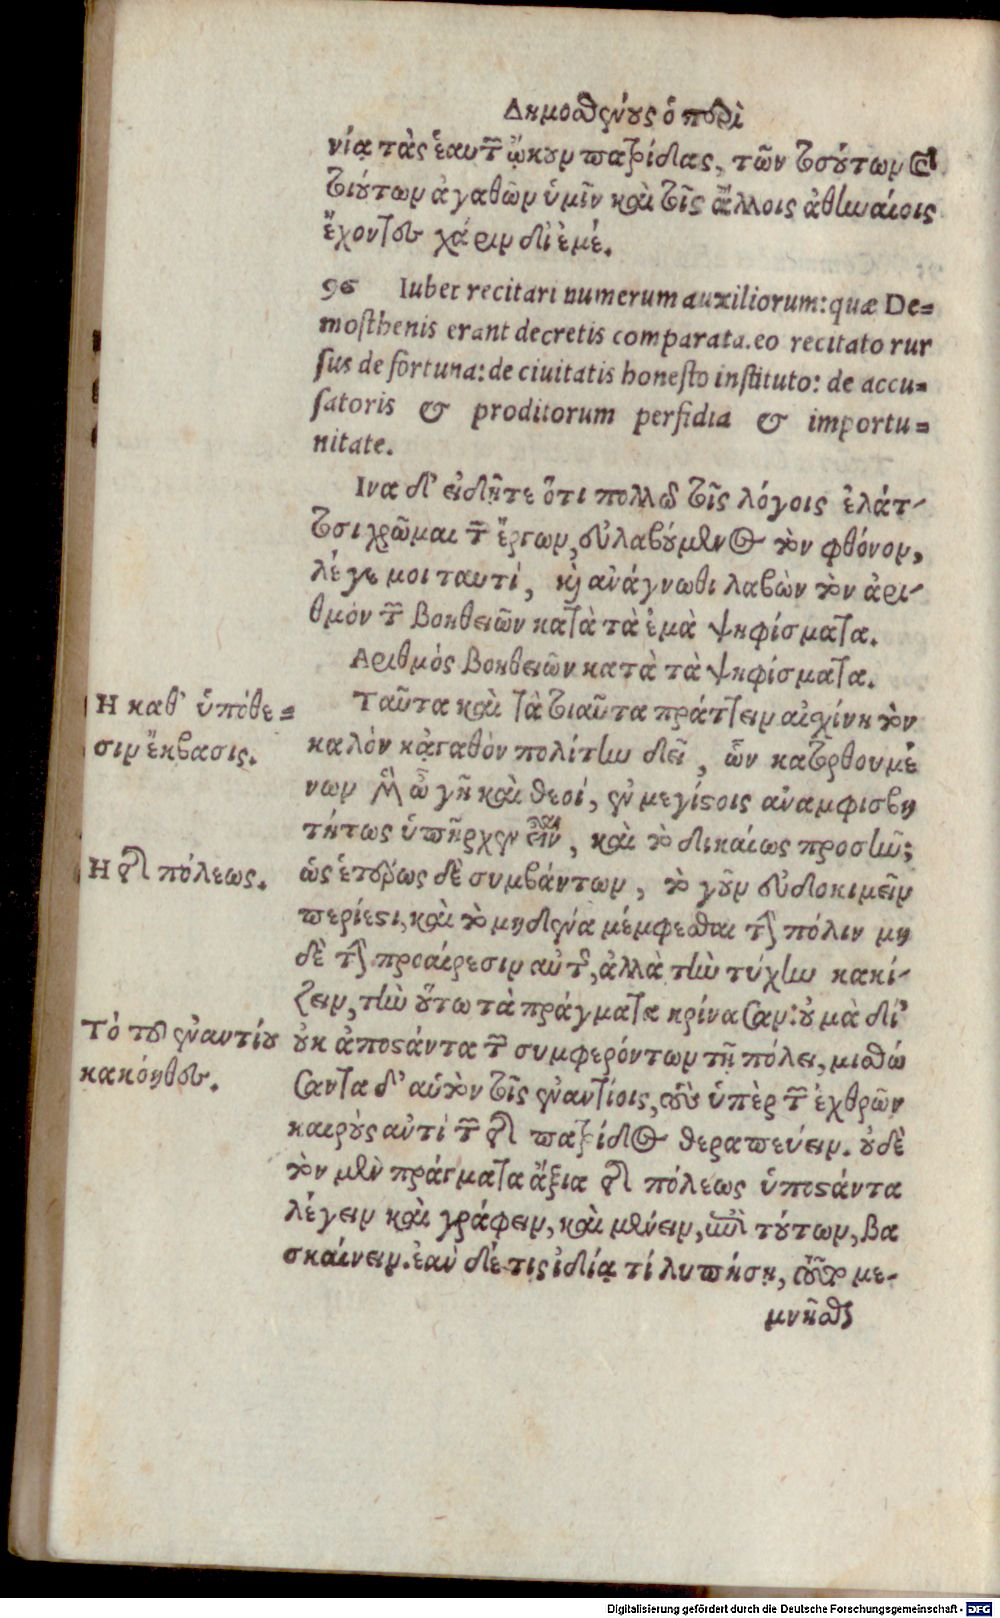 Δημοσθένους ὁ περὶ
νίᾳ τὰς ἑαυτῶν ᾤκουν πατρίδας, τῶν τοσούτων καὶ
τοιούτων ἀγαθῶν ὑμῖν καὶ τοῖς ἄλλοις ἀθηναίοις
ἔχοντες χάριν δι' ἐμέ.
96 Iubet recitari numerum auxiliorum: quæ De=
mosthenis erant decretis comparata. eo recitato rur
sus de fortuna: de ciuitatis honesto instituto: de accu=
satoris & proditorum perfidia & importu=
nitate.
Ινα δ' εἰδῆτε ὅτι πολλῷ τοῖς λόγοις ἐλάτ-
τοσι χρῶμαι τῶν ἔργων, εὐλαβούμενος τὸν φθόνον,
λέγε μοι ταυτί, καὶ ἀνάγνωθι λαβὼν τὸν ἀρι-
θμὸν τῶν βοηθειῶν κατὰ τὰ ἐμὰ ψηφίσματα.
Αριθμὸς βοηθειῶν κατὰ τὰ ψηφίσματα.
Η καθ' ὑπόθε=
σιν ἔκβασις.
Ταῦτα καὶ τὰ τοιαῦτα πράττειν αἰσχίνη τὸν
καλὸν κἀγαθὸν πολίτην δεῖ, ὧν κατορθουμέ
νων μὲν ὦ γῆ καὶ θεοί, ἐν μεγίστοις ἀναμφισβη
τήτως ὑπῆρχεν εἶναι, καὶ τὸ δικαίως προσῆν;
Η τῆς πόλεως.
ὡς ἑτέρως δὲ συμβάντων, τὸ γοῦν εὐδοκιμεῖν
περίεστι, καὶ τὸ μηδένα μέμφεσθαι τὴν πόλιν μη
δὲ τὴν προαίρεσιν αὐτῆς, ἀλλὰ τὴν τύχην κακί-
ζειν, τὴν οὕτω τὰ πράγματα κρίνασαν: οὐ μὰ δί'
Τὸ τοῦ ἐναντίου
κακόηθες.
οὐκ ἀποστάντα τῶν συμφερόντων τῇ πόλει, μισθώ
σαντα δ' αὑτὸν τοῖς ἐναντίοις, τοὺς ὑπὲρ τῶν ἐχθρῶν
καιροὺς ἀντὶ τῶν τῆς πατρίδος θεραπεύειν. οὐδὲ
τὸν μὲν πράγματα ἄξια τῆς πόλεως ὑποστάντα
λέγειν καὶ γράφειν, καὶ μένειν, ἐπὶ τούτων, βα
σκαίνειν. ἐὰν δέ τις ἰδίᾳ τί λυπήσῃ, τοῦτο με-
μνῆσθαι
Digitalisierung gefördert durch die Deutsche Forschungsgemeinschaft - DFG